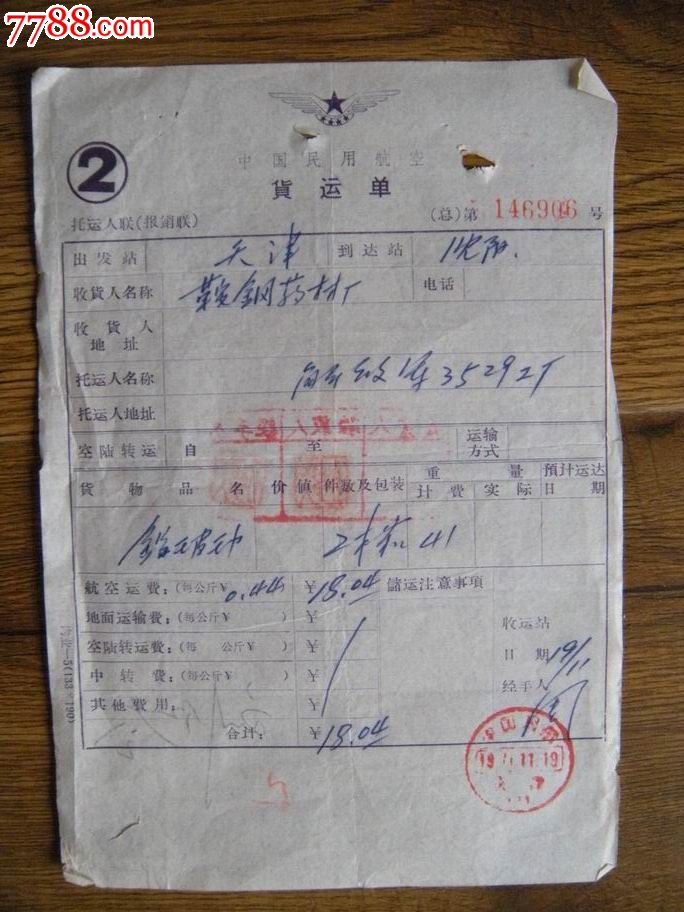 7788.com
中国民用航空
2
貨运单
托运人联(报销联) (总)第 146906 号
出发站 天津 到达站 沈阳.
收貨人名称 鞍钢药材厂 电话
收貨人
地址
托运人名称 35292
托运人地址
空陆转运 自 至 运输方式
貨物品名 价值 件数及包装 重量 計费 实际 預計运达日期
2 41
航空运费:(每公斤¥ 0.44 ¥18.04 儲运注意事項
地面运输费:(每公斤¥ ) ¥
收运站
空陆转运费:(每 公斤¥ ) ¥
日期 19/11
中转费:(每公斤¥ ) ¥
经手人 周
其他费用: ¥
合計: ¥18.04
11.19